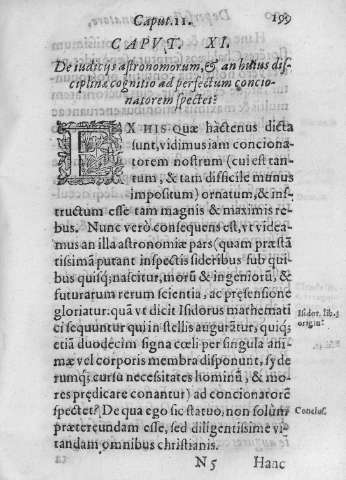 Caput. 11.
199
CAPVT. XI.
De iudicijs astronomorum, & an huius dis-
ciplinæ cognitio ad perfectum concio-
natorem spectet?
EX HIS quæ hactenus dicta
sunt, vidimus iam conciona-
torem nostrum (cui est tan-
tum, & tam difficile munus
impositum) ornatum, & ins-
tructum esse tam magnis & maximis re-
bus. Nunc verò consequens est, vt videa-
mus an illa astronomiæ pars (quam præstã
tissimã putant inspectis sideribus sub qui
bus quisq; nascitur, morũ & ingeniorũ, &
futurarum rerum scientia, ac pręsensione
gloriatur: quã vt dicit Isidorus mathemati
ci sequuntur qui in stellis augurãtur, quiq;
etiã duodecim signa cœli per singula ani-
mæ vel corporis membra disponunt, syde
rumq; cursu necessitates hominũ, & mo-
res prędicare conantur) ad concionatorẽ
spectet? De qua ego sic statuo, non solum
prætereundam esse, sed diligentissime vi-
tandam omnibus christianis.
Isidor. lib. 3
origin.
Conclus.
N 5
Hanc